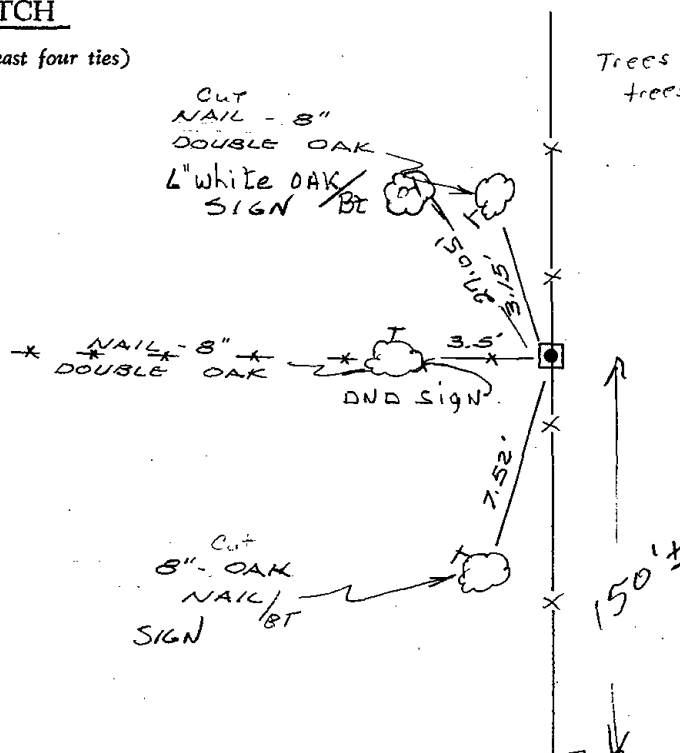 TCH
east four ties)
Trees
trees
Cut
NAIL - 8"
DOUBLE OAK
6" White OAK/BT
SIGN
3.15'
NAIL - 8"
DOUBLE OAK
3.5'
DND SIGN
7.52'
Cut
8" - OAK
NAIL/BT
SIGN
150'±